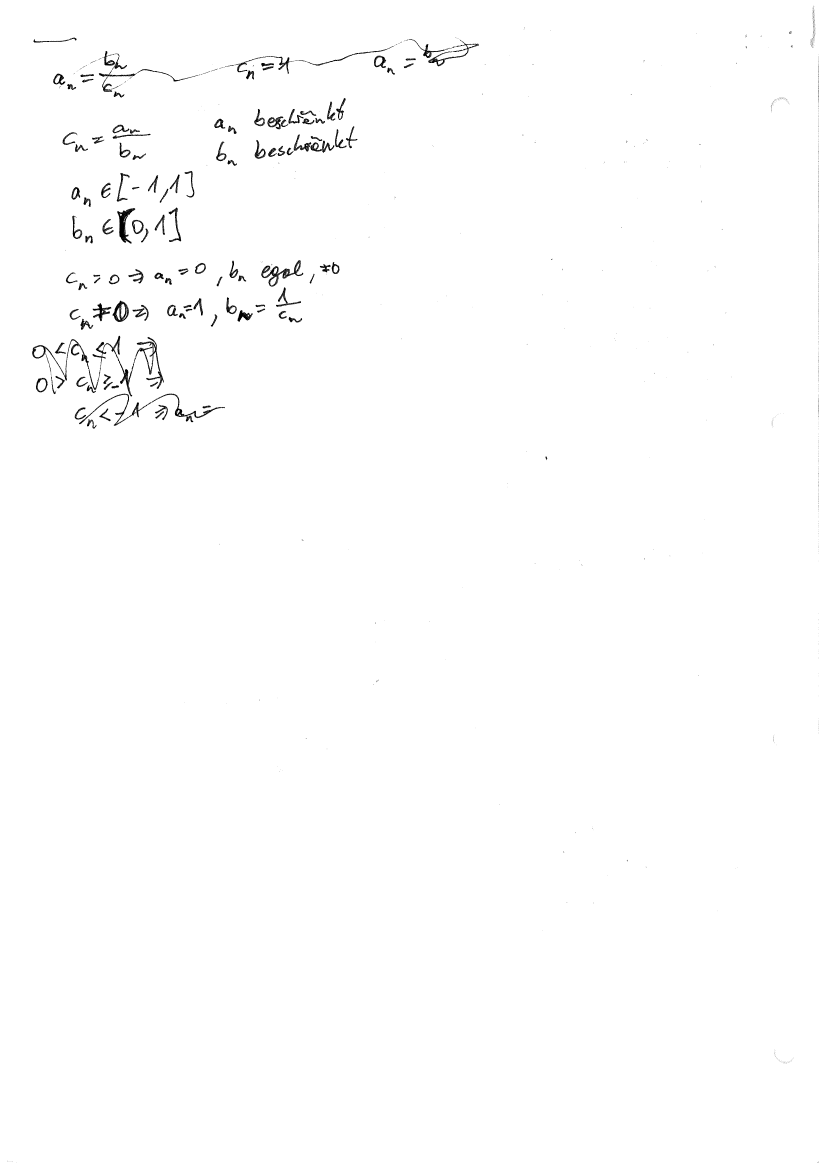 a_n = b_n/c_n c_n = 1 a_n = b_n
c_n = a_n/b_n a_n beschränkt
b_n beschränkt
a_n ∈ [-1,1]
b_n ∈ (0,1]
c_n = 0 ⇒ a_n = 0, b_n egal, ≠0
c_n ≠ 0 ⇒ a_n = 1, b_n = 1/c_n
0 < c_n ≤ 1 ⇒
0 > c_n ≥ -1 ⇒
c_n < -1 ⇒ a_n =